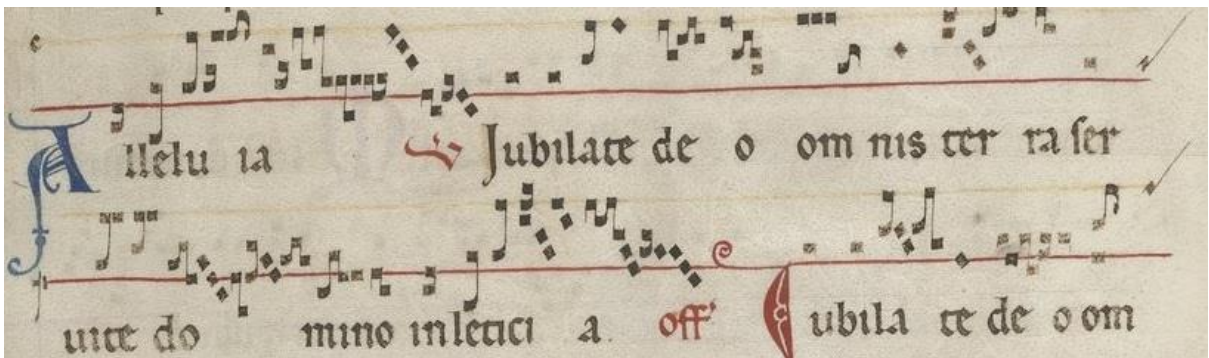 Alleluia ℣ Jubilate deo omnis terra ser
uite domino inleticia. off' Iubilate deo om